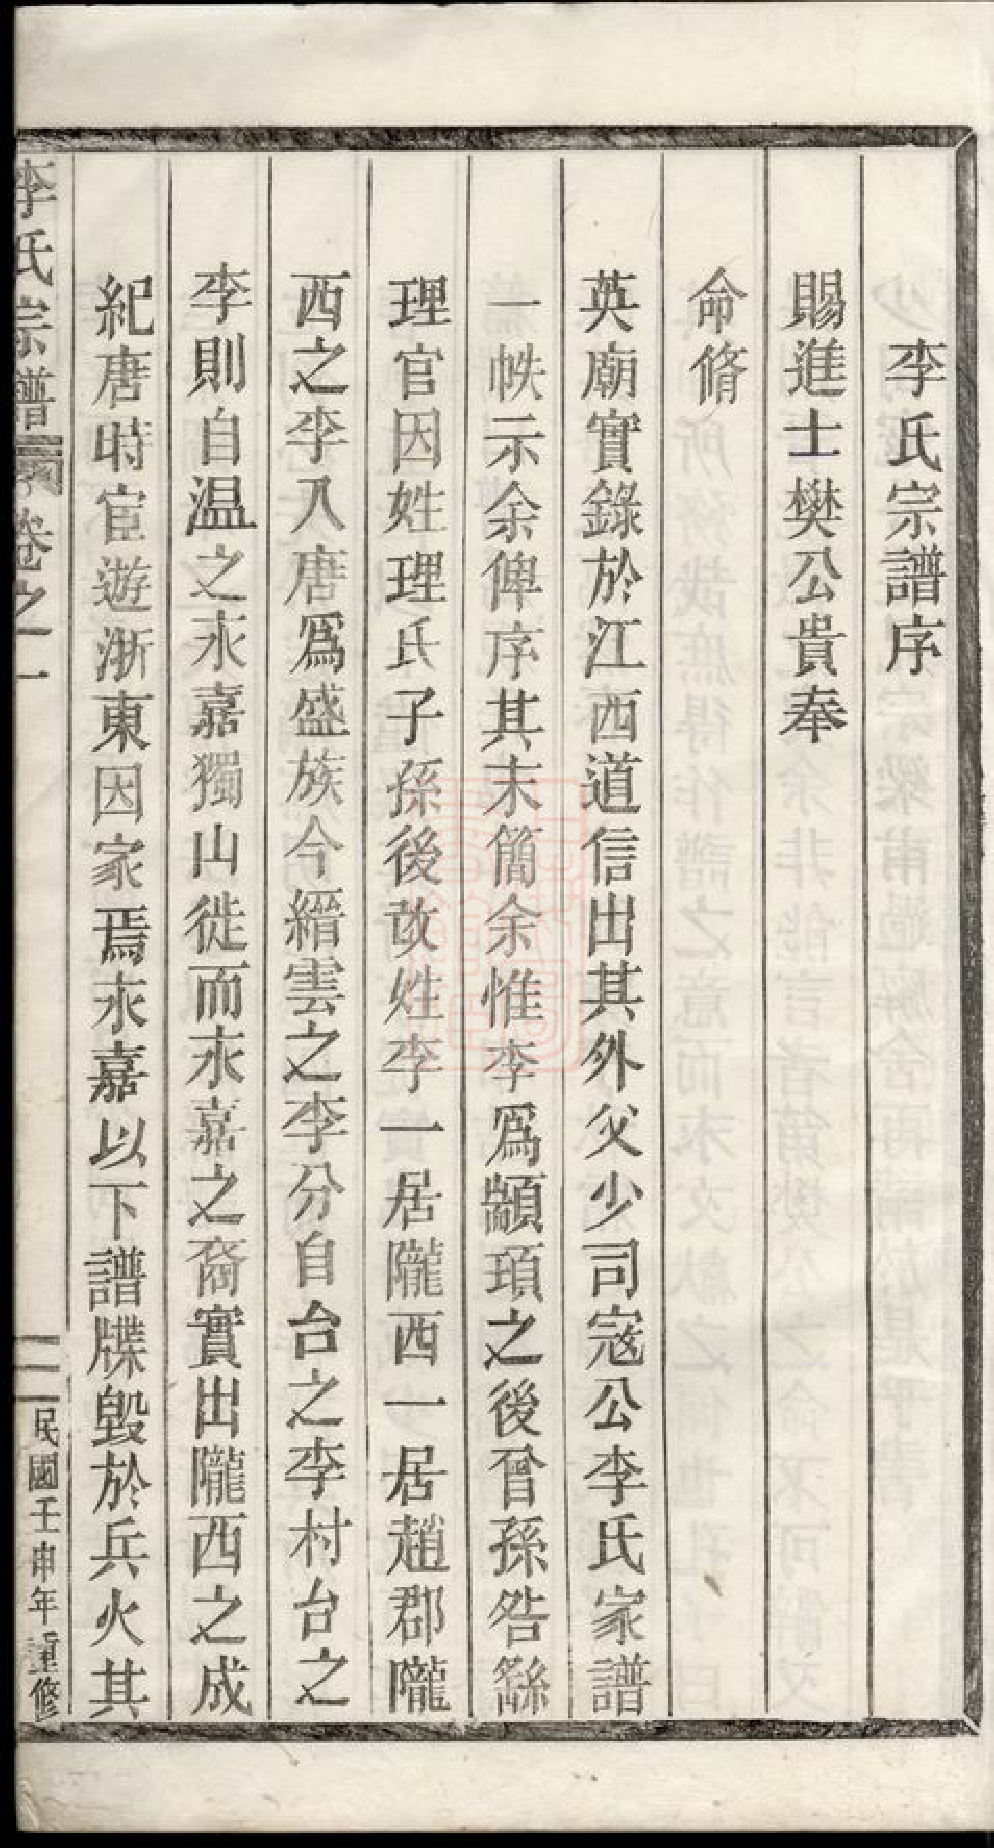 李氏宗譜序
賜進士樊公貴奉
命脩
英廟實錄於江西道信出其外父少司宼公李氏家譜
一帙示余俾序其末簡余惟李爲顓頊之後曾孫咎繇
理官因姓理氏子孫後改姓李一居隴西一居趙郡隴
西之李入唐爲盛族今縉雲之李分自台之李村台之
李則自温之永嘉獨山徙而永嘉之裔實出隴西之成
紀唐時宦遊浙東因家焉永嘉以下譜牒毀於兵火其
李氏宗譜 卷之一
一 民國壬申年重修